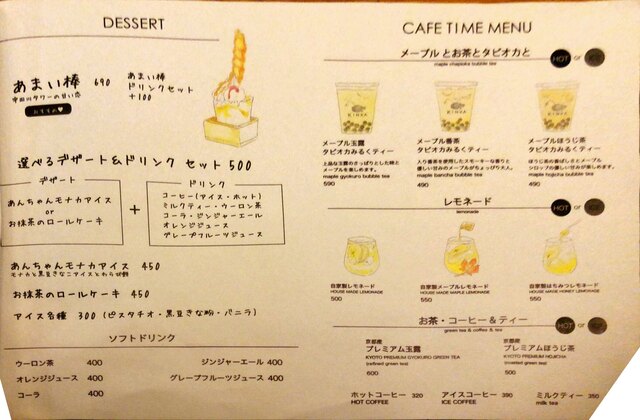 DESSERT
あまい棒 690
あまい棒
ドリンクセット
+100
おすすめ
選べるデザート&ドリンク セット 500
デザート
あんちゃんモナカアイス
or
お抹茶のロールケーキ
+
ドリンク
コーヒー(アイス・ホット)
ミルクティー・ウーロン茶
コーラ・ジンジャーエール
オレンジジュース
グレープフルーツジュース
あんちゃんモナカアイス 450
お抹茶のロールケーキ 450
アイス各種 300 (ピスタチオ・黒豆きな粉・バニラ)
ソフトドリンク
ウーロン茶 400
ジンジャーエール 400
オレンジジュース 400
グレープフルーツジュース 400
コーラ 400
CAFE TIME MENU
メープル とお茶とタピオカと
HOT or ICE
メープル玉露
タピオカみるくティー
上品な玉露のさっぱりとした緑と
メープルを楽しめます。
maple gyokuro bubble tea
590
メープル番茶
タピオカみるくティー
入り番茶を使用したスモーキーな香りと
優しい甘みのメープルがちょっぴり大人。
maple bancha bubble tea
490
メープルほうじ茶
タピオカみるくティー
ほうじ茶の香ばしさとメープル
シロップの優しい甘みが楽しめます。
maple hojicha bubble tea
490
レモネード
lemonade
HOT or ICE
自家製レモネード
HOUSE MADE LEMONADE
500
自家製メープルレモネード
HOUSE MADE MAPLE LEMONADE
550
自家製はちみつレモネード
HOUSE MADE HONEY LEMONADE
550
お茶・コーヒー&ティー
green tea & coffee & tea
HOT or ICE
京都産
プレミアム玉露
KYOTO PREMIUM GYOKURO GREEN TEA
(refined green tea)
600
京都産
プレミアムほうじ茶
KYOTO PREMIUM HOJICHA
(roasted green tea)
500
ホットコーヒー 320
HOT COFFEE
アイスコーヒー 390
ICE COFFEE
ミルクティー 350
milk tea